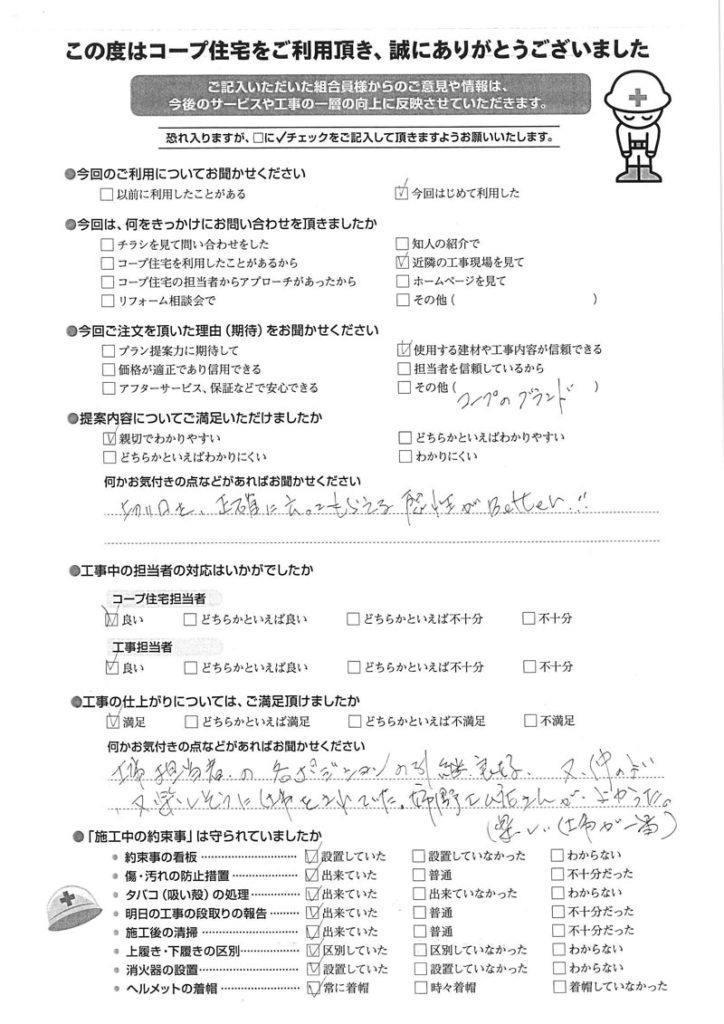 この度はコープ住宅をご利用頂き、誠にありがとうございました
ご記入いただいた組合員様からのご意見や情報は、
今後のサービスや工事の一層の向上に反映させていただきます。
恐れ入りますが、□に✓チェックをご記入して頂きますようお願いいたします。
●今回のご利用についてお聞かせください
□以前に利用したことがある ☑今回はじめて利用した
●今回は、何をきっかけにお問い合わせを頂きましたか
□チラシを見て問い合わせをした □知人の紹介で
□コープ住宅を利用したことがあるから ☑近隣の工事現場を見て
□コープ住宅の担当者からアプローチがあったから □ホームページを見て
□リフォーム相談会で □その他( )
●今回ご注文を頂いた理由(期待)をお聞かせください
□プラン提案力に期待して ☑使用する建材や工事内容が信頼できる
□価格が適正であり信用できる □担当者を信頼しているから
□アフターサービス、保証などで安心できる □その他( )
コープのブランド
●提案内容についてご満足いただけましたか
☑親切でわかりやすい □どちらかといえばわかりやすい
□どちらかといえばわかりにくい □わかりにくい
何かお気付きの点などがあればお聞かせください
正確に云ってもらえる 感性がBetter!!
●工事中の担当者の対応はいかがでしたか
コープ住宅担当者
☑良い □どちらかといえば良い □どちらかといえば不十分 □不十分
工事担当者
☑良い □どちらかといえば良い □どちらかといえば不十分 □不十分
●工事の仕上がりについては、ご満足頂けましたか
☑満足 □どちらかといえば満足 □どちらかといえば不満足 □不満足
何かお気付きの点などがあればお聞かせください
工事担当者の各ポジションの引継 又、仲のよい
又、楽しそうに仕事をされていた。 さんが、よかった。
(楽しい仕事が一番)
●「施工中の約束事」は守られていましたか
・約束事の看板 ☑設置していた □設置していなかった □わからない
・傷・汚れの防止措置 ☑出来ていた □普通 □不十分だった
・タバコ(吸い殻)の処理 ☑出来ていた □出来ていなかった □わからない
・明日の工事の段取りの報告 ☑出来ていた □普通 □不十分だった
・施工後の清掃 ☑出来ていた □普通 □不十分だった
・上履き・下履きの区別 ☑区別していた □区別していなかった □わからない
・消火器の設置 ☑設置していた □設置していなかった □わからない
・ヘルメットの着帽 ☑常に着帽 □時々着帽 □着帽していなかった